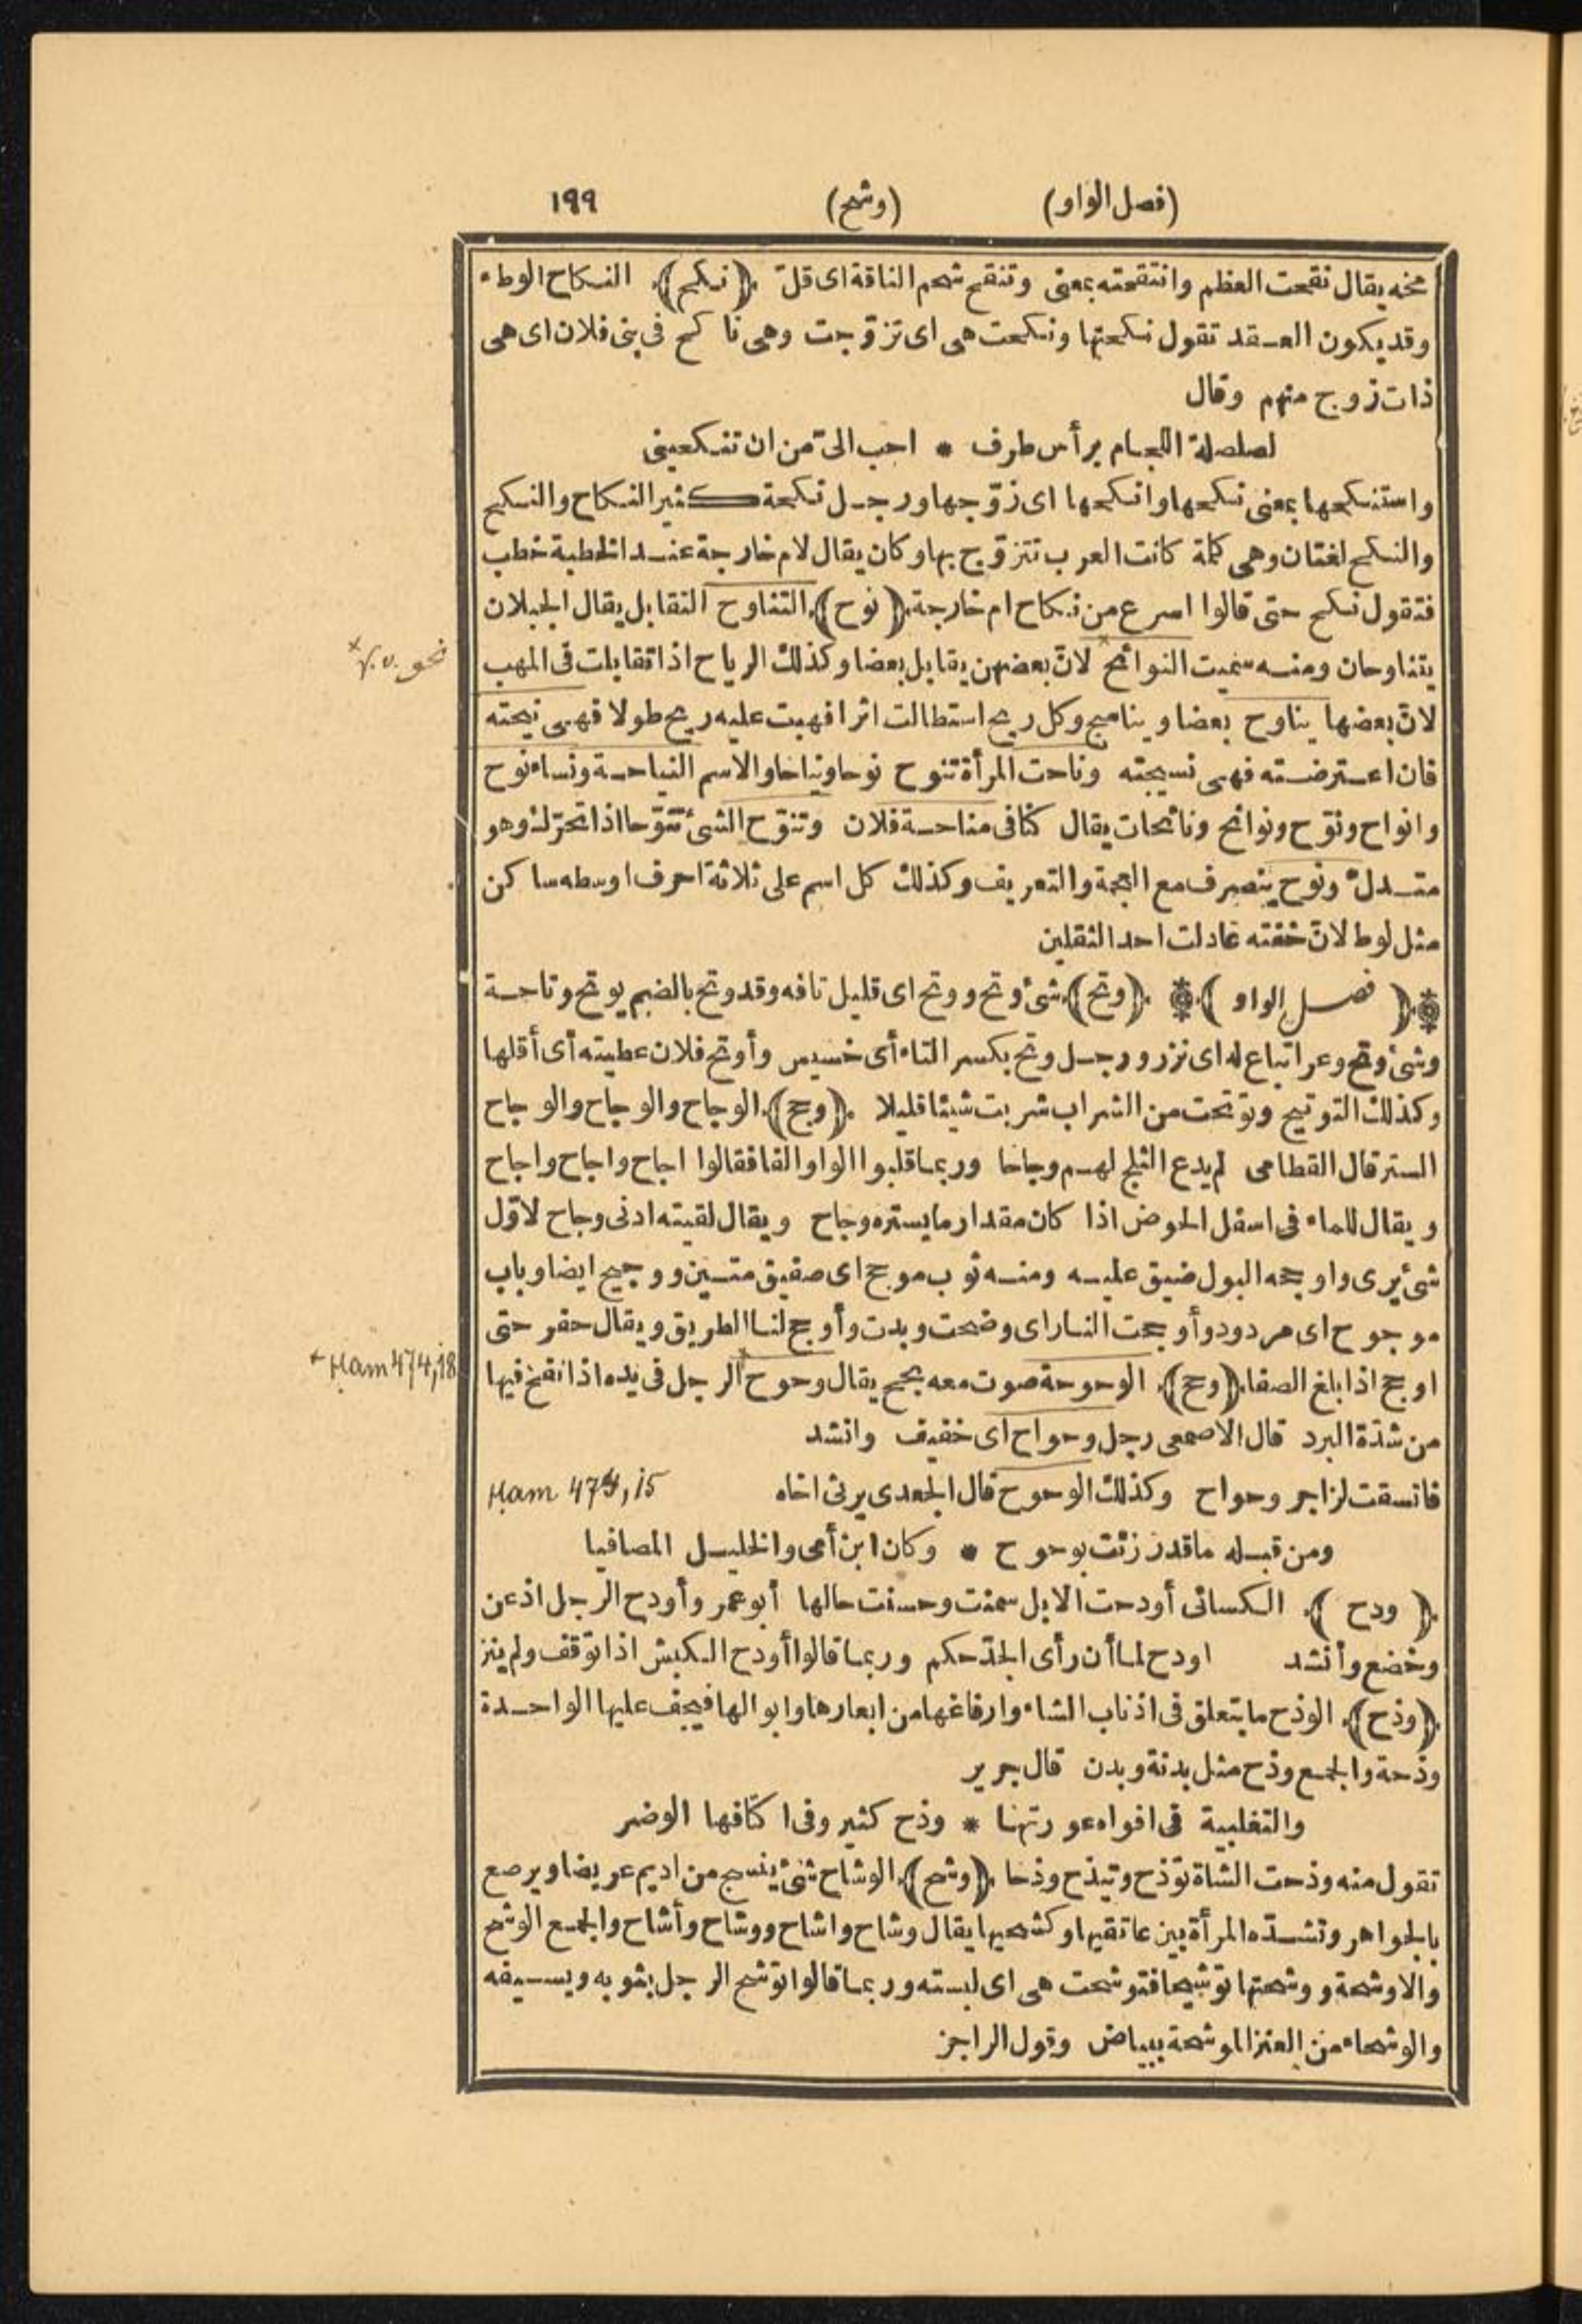 (فصل الواو) (وشح) ١٩٩
مخه يقال نقحت العظم وانتقحته بمعنى وتنقح شحم الناقة اى قلّ ﴿نكح﴾ النكاح الوطء
وقد يكون العقد تقول نكحتها ونكحت هى اى تزوّجت وهى ناكح فى بنى فلان اى هى
ذات زوج منهم وقال
لصلصلة اللجام برأس طرف * احب الىّ من ان تنكحينى
واستنكحها بمعنى نكحها وانكحها اى زوّجها ورجل نكحة كثير النكاح والنكح
والنكح لغتان وهى كلمة كانت العرب تتزوّج بها وكان يقال لام خارجة عند الخطبة خطب
فتقول نكح حتى قالوا اسرع من نكاح ام خارجة ﴿نوح﴾ التناوح التقابل يقال الجبلان
يتناوحان ومنه سميت النوائح لانّ بعضهن يقابل بعضا وكذلك الرياح اذا تقابلت فى المهب
نحو v.v. ×
لانّ بعضها يناوح بعضا ويناسج وكل ريح استطالت اثرا فهبت عليه ريح طولا فهى نيحته
فان اعترضته فهى نسيجته وناحت المرأة تنوح نوحا ونياحا والاسم النياحة ونساء نوح
وانواح ونوّح ونوائح ونائحات يقال كنا فى مناحة فلان وتنوّح الشئ تنوّحا اذا تحرّك وهو
متدلّ ونوح ينصرف مع العجمة والتعريف وكذلك كل اسم على ثلاثة احرف اوسطه ساكن
مثل لوط لانّ خفته عادلت احد الثقلين
﴿فصل الواو﴾ ﴿وتح﴾ شئ وتح ووتح اى قليل تافه وقد وتح بالضم يوتح وتاحة
وشئ وتح وعر اتباع له اى نزر ورجل وتح بكسر التاء أى خسيس وأوتح فلان عطيته أى أقلها
وكذلك التوتيح وتوتحت من الشراب شربت شيئا قليلا ﴿وجح﴾ الوجاح والوجاح والوجاح
الستر قال القطامى لم يدع الثلج لهم وجاحا وربما قلبوا الواو الفا فقالوا اجاح واجاح واجاح
ويقال للماء فى اسفل الحوض اذا كان مقدار ما يستره وجاح ويقال لقيته ادنى وجاح لاوّل
شئ يرى واوجحه البول ضيق عليه ومنه ثوب موجح اى صفيق متين ووجيح ايضا وباب
موجوح اى مردود وأوجحت النار اى وضحت وبدت وأوجح لنا الطريق ويقال حفر حتى
اوجح اذا بلغ الصفا ﴿وحح﴾ الوحوحة صوت معه بحح يقال وحوح الرجل فى يده اذا نفخ فيها
Ham 474,18
من شدّة البرد قال الاصمعى رجل وحواح اى خفيف وانشد
فاتسقت لزاجر وحواح وكذلك الوحوح قال الجعدى يرثى اخاه
Ham 474,15
ومن قبله ما قد رزئت بوحوح * وكان ابن أمى والخليل المصافيا
﴿ودح﴾ الكسائى أودحت الابل سمنت وحسنت حالها أبو عمر وأودح الرجل اذعن
وخضع وأنشد اودح لما أن رأى الجدّ حكم وربما قالوا أودح الكبش اذا توقف ولم ينز
﴿وذح﴾ الوذح ما يتعلق فى اذناب الشاء وارفاغها من ابعارها وابوالها فيجف عليها الواحدة
وذحة والجمع وذح مثل بدنة وبدن قال جرير
والتغلبية فى افواه عورتها * وذح كثير وفى اكتافها الوضر
تقول منه وذحت الشاة توذح وتيذح وذحا ﴿وشح﴾ الوشاح شئ ينسج من اديم عريضا ويرصع
بالجواهر وتشدّه المرأة بين عاتقيها وكشحيها يقال وشاح واشاح ووشاح وأشاح والجمع الوشح
والاوشحة ووشحتها توشيحا فتوشحت هى اى لبسته وربما قالوا توشح الرجل بثوبه وبسيفه
والوشحاء من العنز الموشحة ببياض وقول الراجز